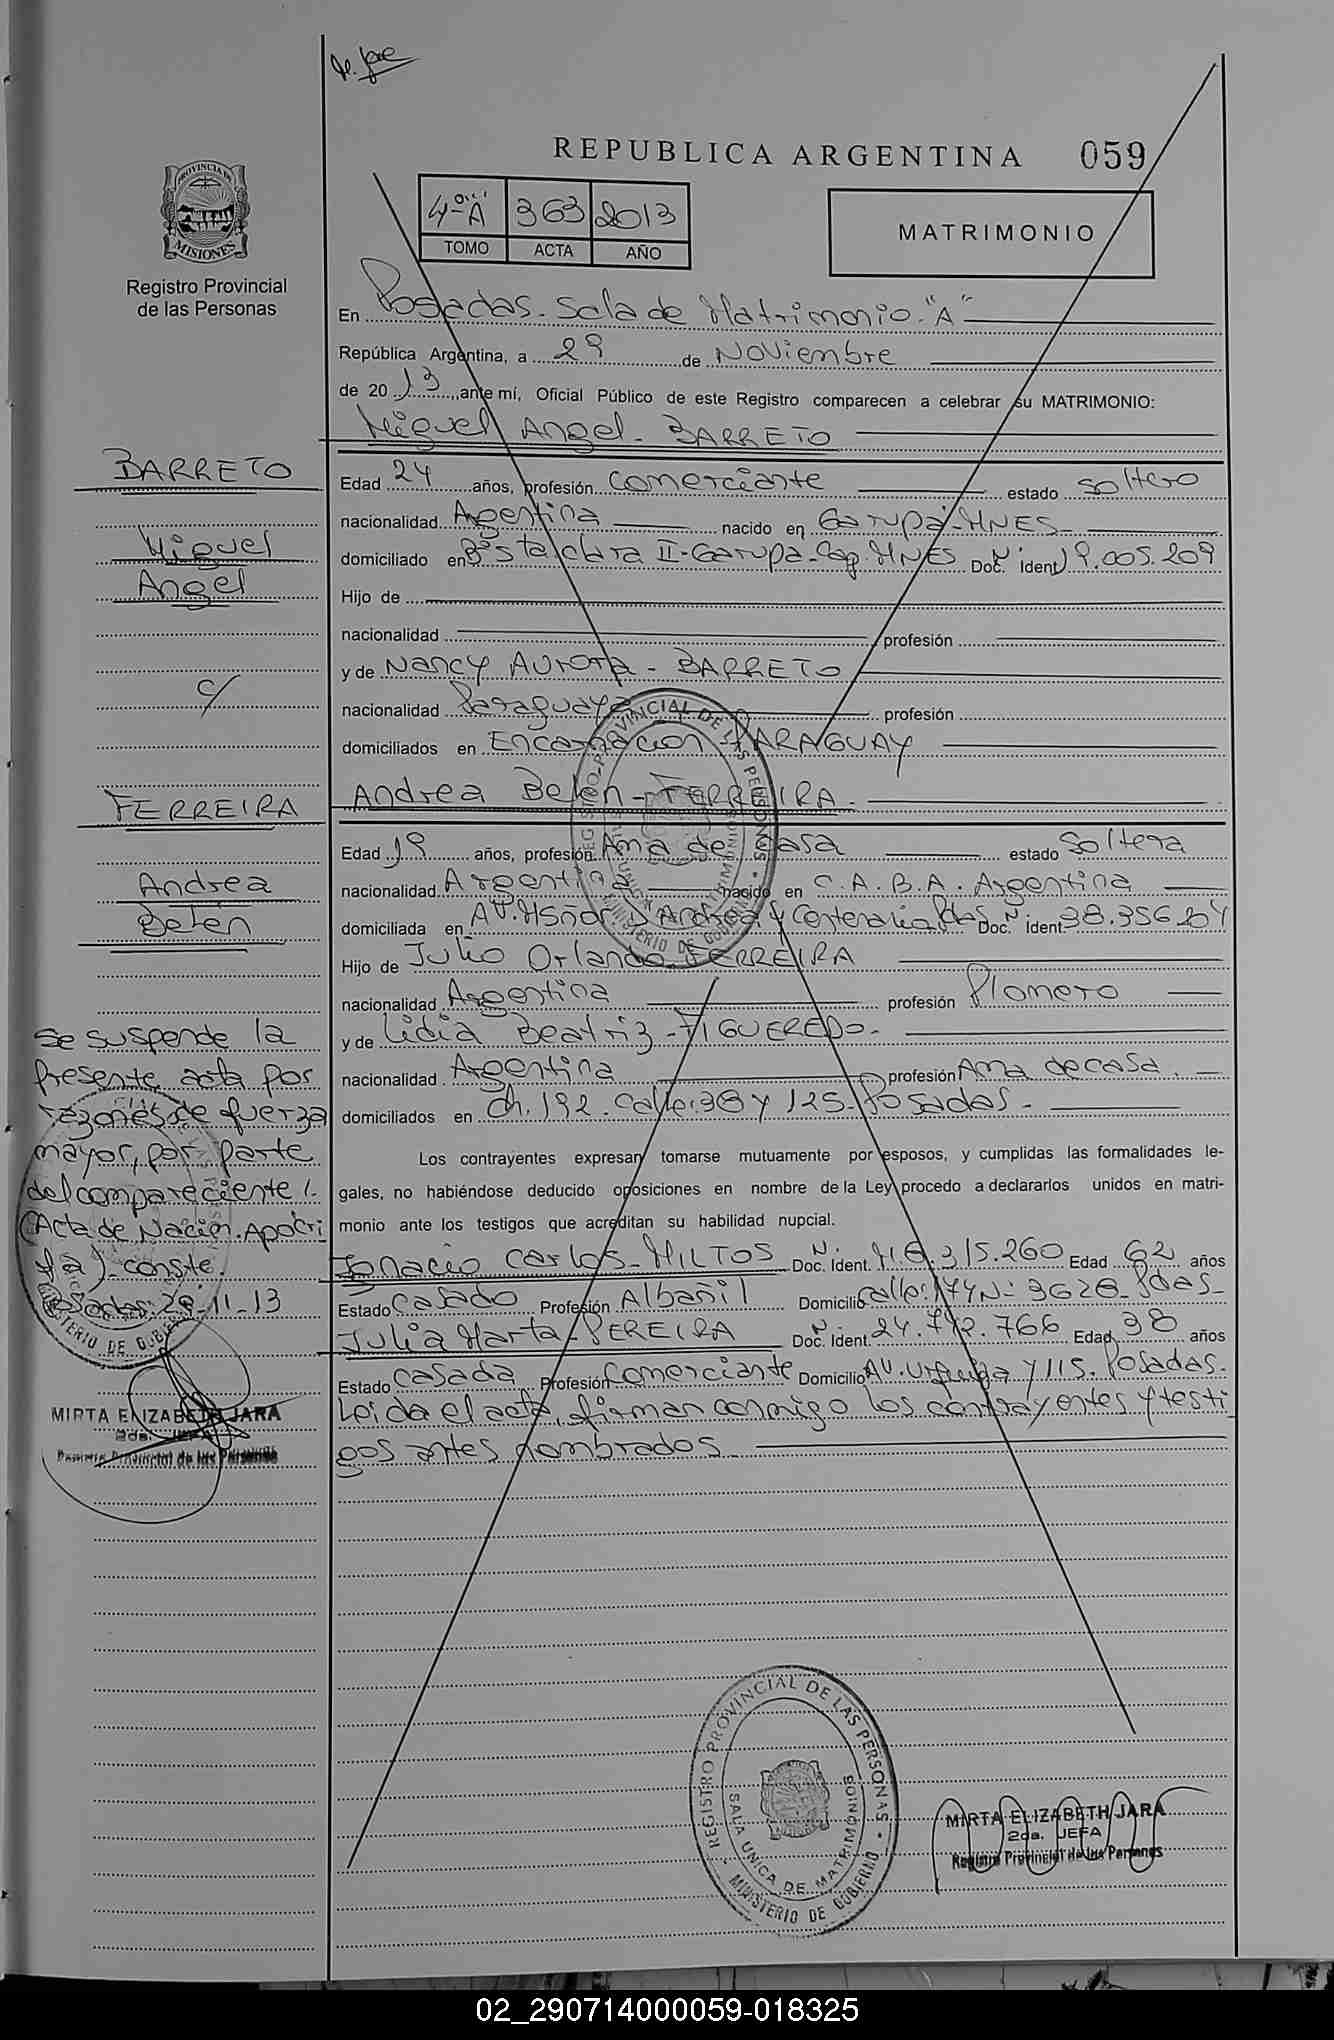 REPUBLICA ARGENTINA 059
PROVINCIA DE MISIONES
Registro Provincial
de las Personas
4º "A" 363 2013
TOMO ACTA AÑO
MATRIMONIO
En Posadas - Sala de Matrimonio - "A"
República Argentina, a 29 de Noviembre
de 2013, ante mí, Oficial Público de este Registro comparecen a celebrar su MATRIMONIO:
Miguel Angel - BARRETO
BARRETO
Miguel
Angel
c/
FERREIRA
Andrea
Belén
Edad 24 años, profesión Comerciante estado Soltero
nacionalidad Argentina nacido en Garupá - MNES -
domiciliado en Bº Sta clara II - Garupa - Cap. MNES Doc. Nº Ident 9.005.209
Hijo de
nacionalidad profesión
y de Nancy Aurora - BARRETO
nacionalidad Paraguaya profesión
domiciliados en Encarnacion - PARAGUAY
Andrea Belén - FERREIRA -
Edad 19 años, profesión Ama de Casa estado Soltera
nacionalidad Argentina nacido en C.A.B.A. Argentina
domiciliada en Av. Msñor D'Andrea y Centenario Pdas Doc. Nº Ident 38.356.204
Hijo de Julio Orlando FERREIRA
nacionalidad Argentina profesión Plomero
y de Lidia Beatriz - FIGUEREDO -
nacionalidad Argentina profesión Ama de casa.
domiciliados en Ch. 192. Calle: 38 y 125 - Posadas -
Los contrayentes expresan tomarse mutuamente por esposos, y cumplidas las formalidades le-
gales, no habiéndose deducido oposiciones en nombre de la Ley procedo a declararlos unidos en matri-
monio ante los testigos que acreditan su habilidad nupcial.
Ignacio Carlos - MILTOS Doc. Nº Ident. M 8.315.260 Edad 62 años
Estado Casado Profesión Albañil Domicilio calle: 174 Nº 3628 - Pdas -
Julia Marta - PEREIRA Doc. Nº Ident 24.792.766 Edad 38 años
Estado Casada Profesión Comerciante Domicilio Av. Urquiza y 115. Posadas -
Leida el acta, firman conmigo los contrayentes y testi
gos antes nombrados
Se suspende la
presente acta por
razones de fuerza
mayor, por parte
del compareciente /.
(Acta de Nacim. Apócri
fa) - conste
Posadas: 29-11-13
MIRTA ELIZABETH JARA
2da. JEFA
Registro Provincial de las Personas
REGISTRO PROVINCIAL DE LAS PERSONAS
SALA UNICA DE MATRIMONIOS
MINISTERIO DE GOBIERNO
MIRTA ELIZABETH JARA
2da. JEFA
Registro Provincial de las Personas
02_290714000059-018325